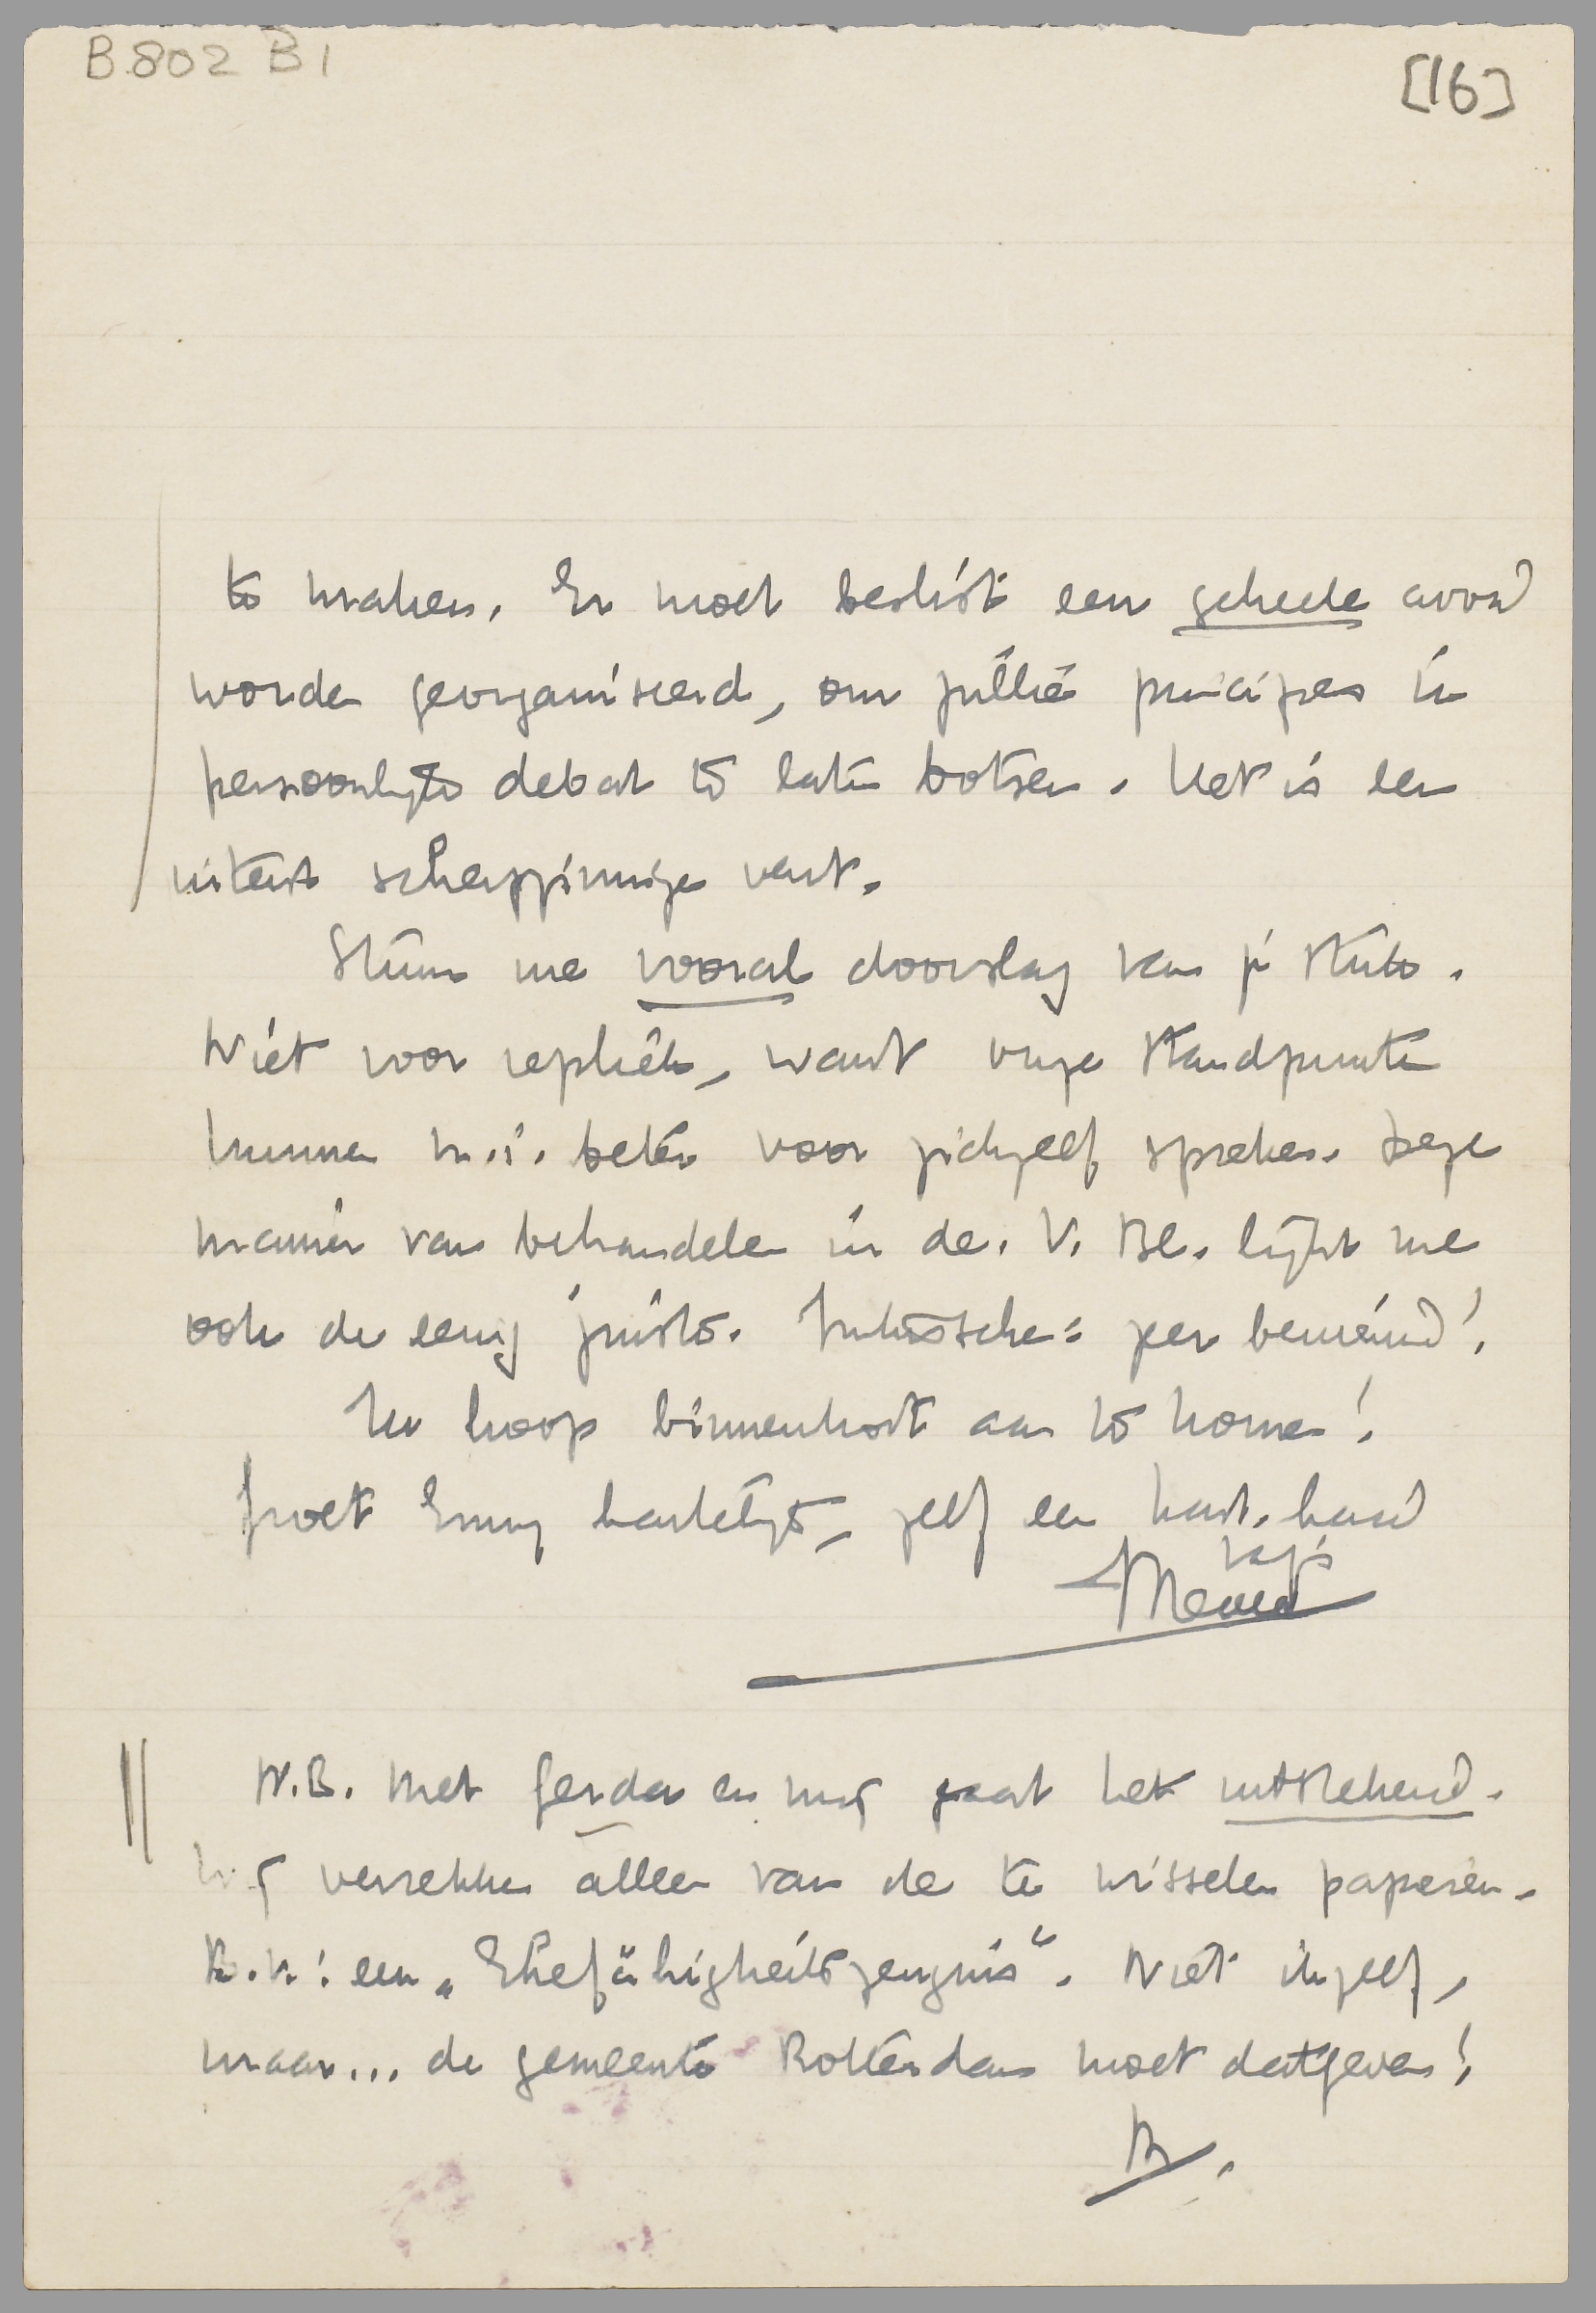 B 802 B 1
[16]
te maken. Er moet beslist een geheele avond
worden georganiseerd, om jullie principes in
persoonlijk debat te laten botsen. Het is een
uiterst scherpzinnige vent.
Stuur me vooral doorslag van je stuk.
Niet voor repliek, want onze standpunten
kunnen m.i. beter voor zichzelf spreken. Deze
manier van behandelen in de V. Bl. lijkt me
ook de eenig juiste. Intusschen: zeer benieuwd!
Ik hoop binnenkort aan te komen!
Groet Emmy hartelijk, zelf een hart. hand
van je
Menno
N.B. Met Gerda en mij gaat het uitstekend.
Wij verrekken alleen van de te wisselen papieren.
B.v.: een „Ehefähigkeitszeugnis“. Niet ikzelf,
maar... de gemeente Rotterdam moet dat geven!
M.